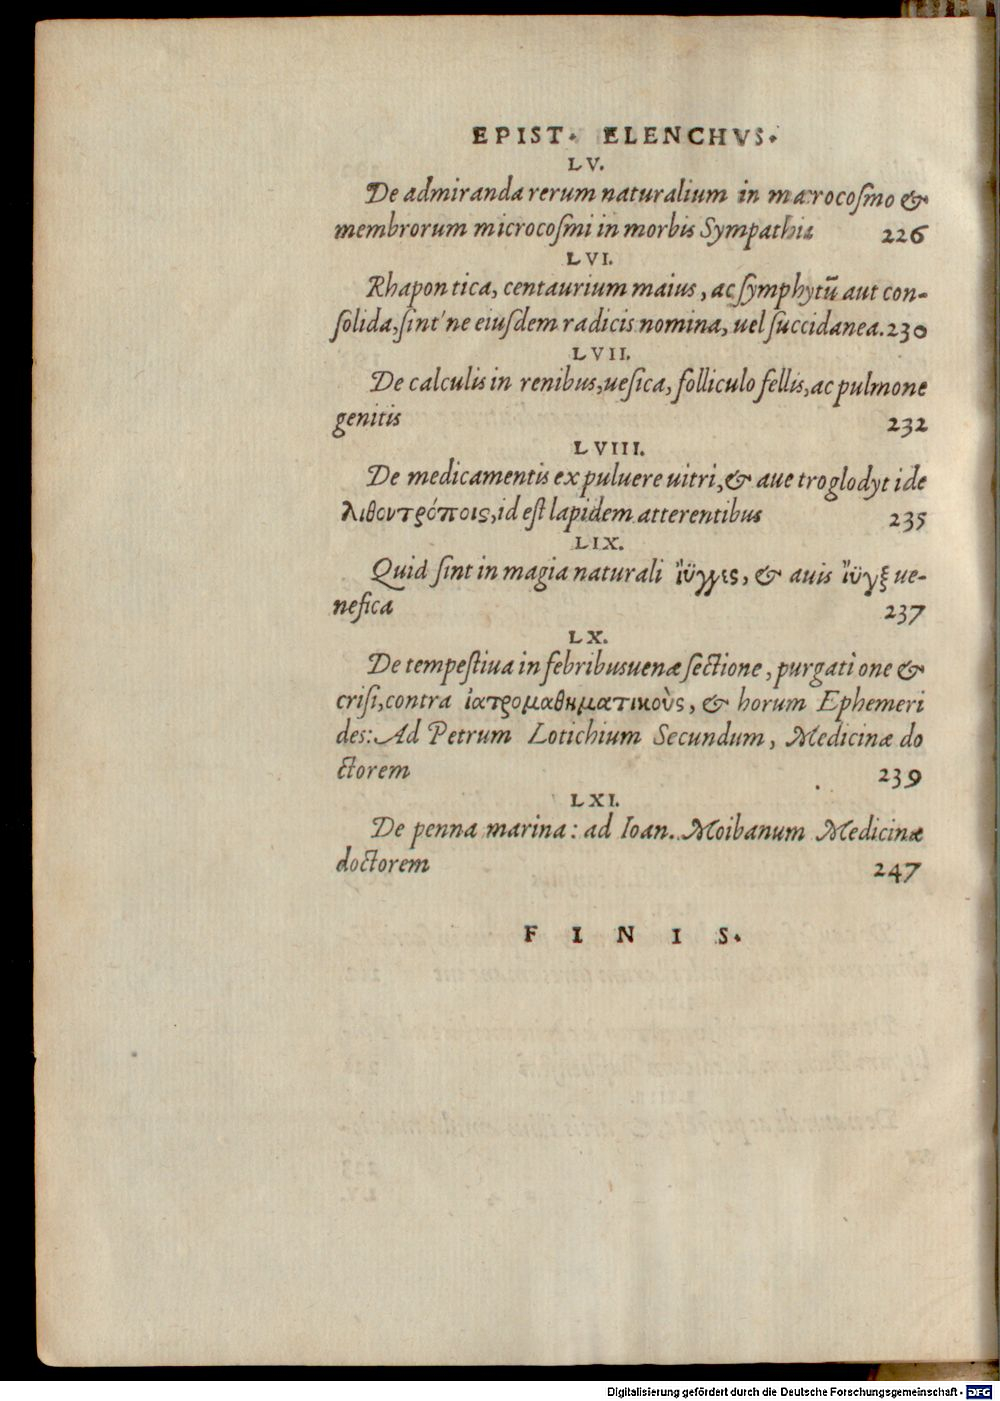 EPIST. ELENCHVS.
LV.
De admiranda rerum naturalium in macrocosmo &
membrorum microcosmi in morbis Sympathia 226
LVI.
Rhapontica, centaurium maius, ac symphytū aut con-
solida, sint'ne eiusdem radicis nomina, uel succidanea. 230
LVII.
De calculis in renibus, uesica, folliculo fellis, ac pulmone
genitis 232
LVIII.
De medicamentis ex puluere uitri, & aue troglodytide
λιθοντρόποις, id est lapidem atterentibus 235
LIX.
Quid sint in magia naturali ἴϋγγες, & auis ἴϋγξ ue-
nefica 237
LX.
De tempestiua in febribus uenæ sectione, purgatione &
crisi, contra ἰατρομαθηματικοὺς, & horum Ephemeri
des: Ad Petrum Lotichium Secundum, Medicinæ do
ctorem 239
LXI.
De penna marina: ad Ioan. Moibanum Medicinæ
doctorem 247
FINIS.
Digitalisierung gefördert durch die Deutsche Forschungsgemeinschaft - DFG